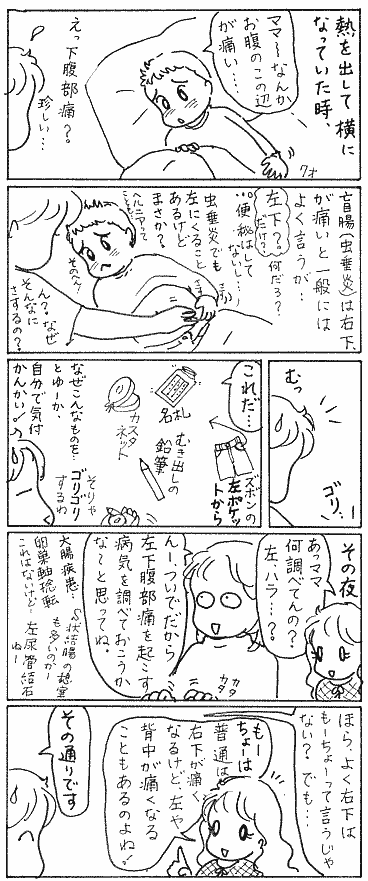 熱を出して横に
なっていた時、
ママ～なんか
お腹のこの辺
が痛い…
えっ下腹部痛？
珍しい…
7才
盲腸(虫垂炎)は右下、
が痛いと一般には
よく言うが…
左下？
だけ？
何だろ？
便秘はして
ないし…
虫垂炎でも
左にくること
あるけど
まさか？
ヘルニアって
ことも…
その~
さす
さす
ん？なぜ
そんなに
さするの？
むっ
ゴリ、
これだ…
ズボンの
左ポケッ
トから
名札
むき出しの
鉛筆
カスタ
ネット
なぜこんなものを…
とゆーか、
自分で気付
かんかい！
そりゃ
ゴリゴリ
するわ
その夜
あっママ
何調べてんの？
左、ハラ…？
んー、ついでだから
左下腹部痛を起こす
病気を調べておこうか
な～と思ってね。
カタ
カタ
大腸疾患…S状結腸の憩室
も多いのかー
卵巣軸捻転
これはないけど…
左尿管結石
ねー
ほら、よく右下は
もーちょーって言うじゃ
ない？でも…
もー
ちょーは
普通は
右下が痛く
なるけど、左や
背中が痛くなる
こともあるのよね！
その通りです